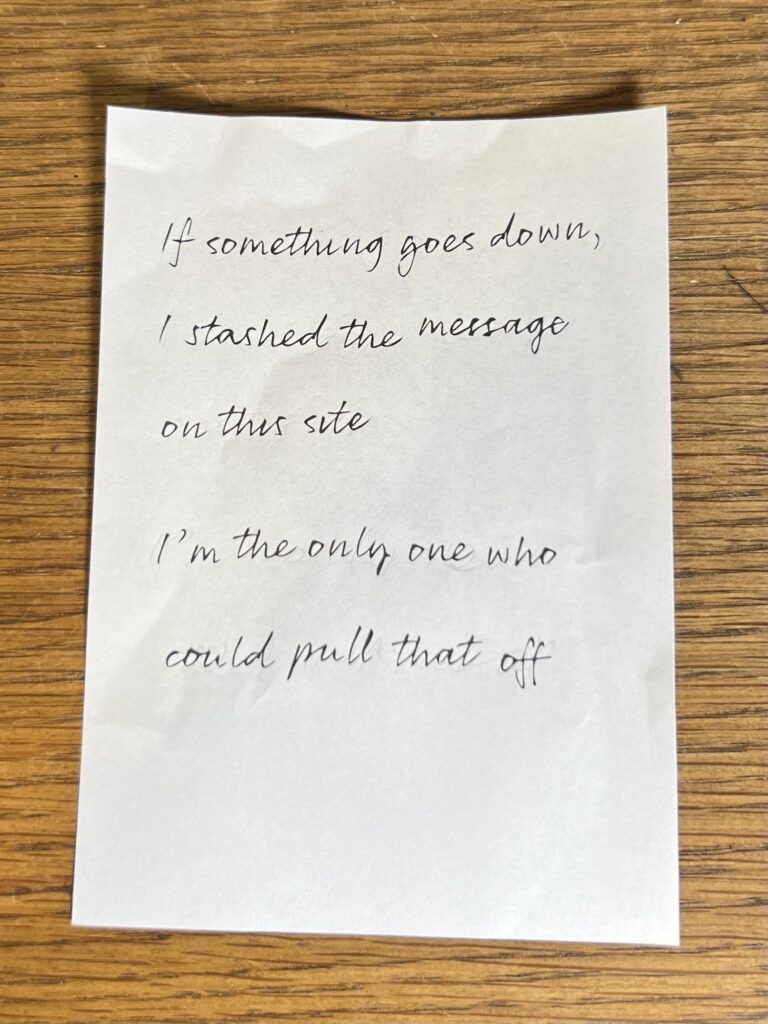 If something goes down,
I stashed the message
on this site
I'm the only one who
could pull that off